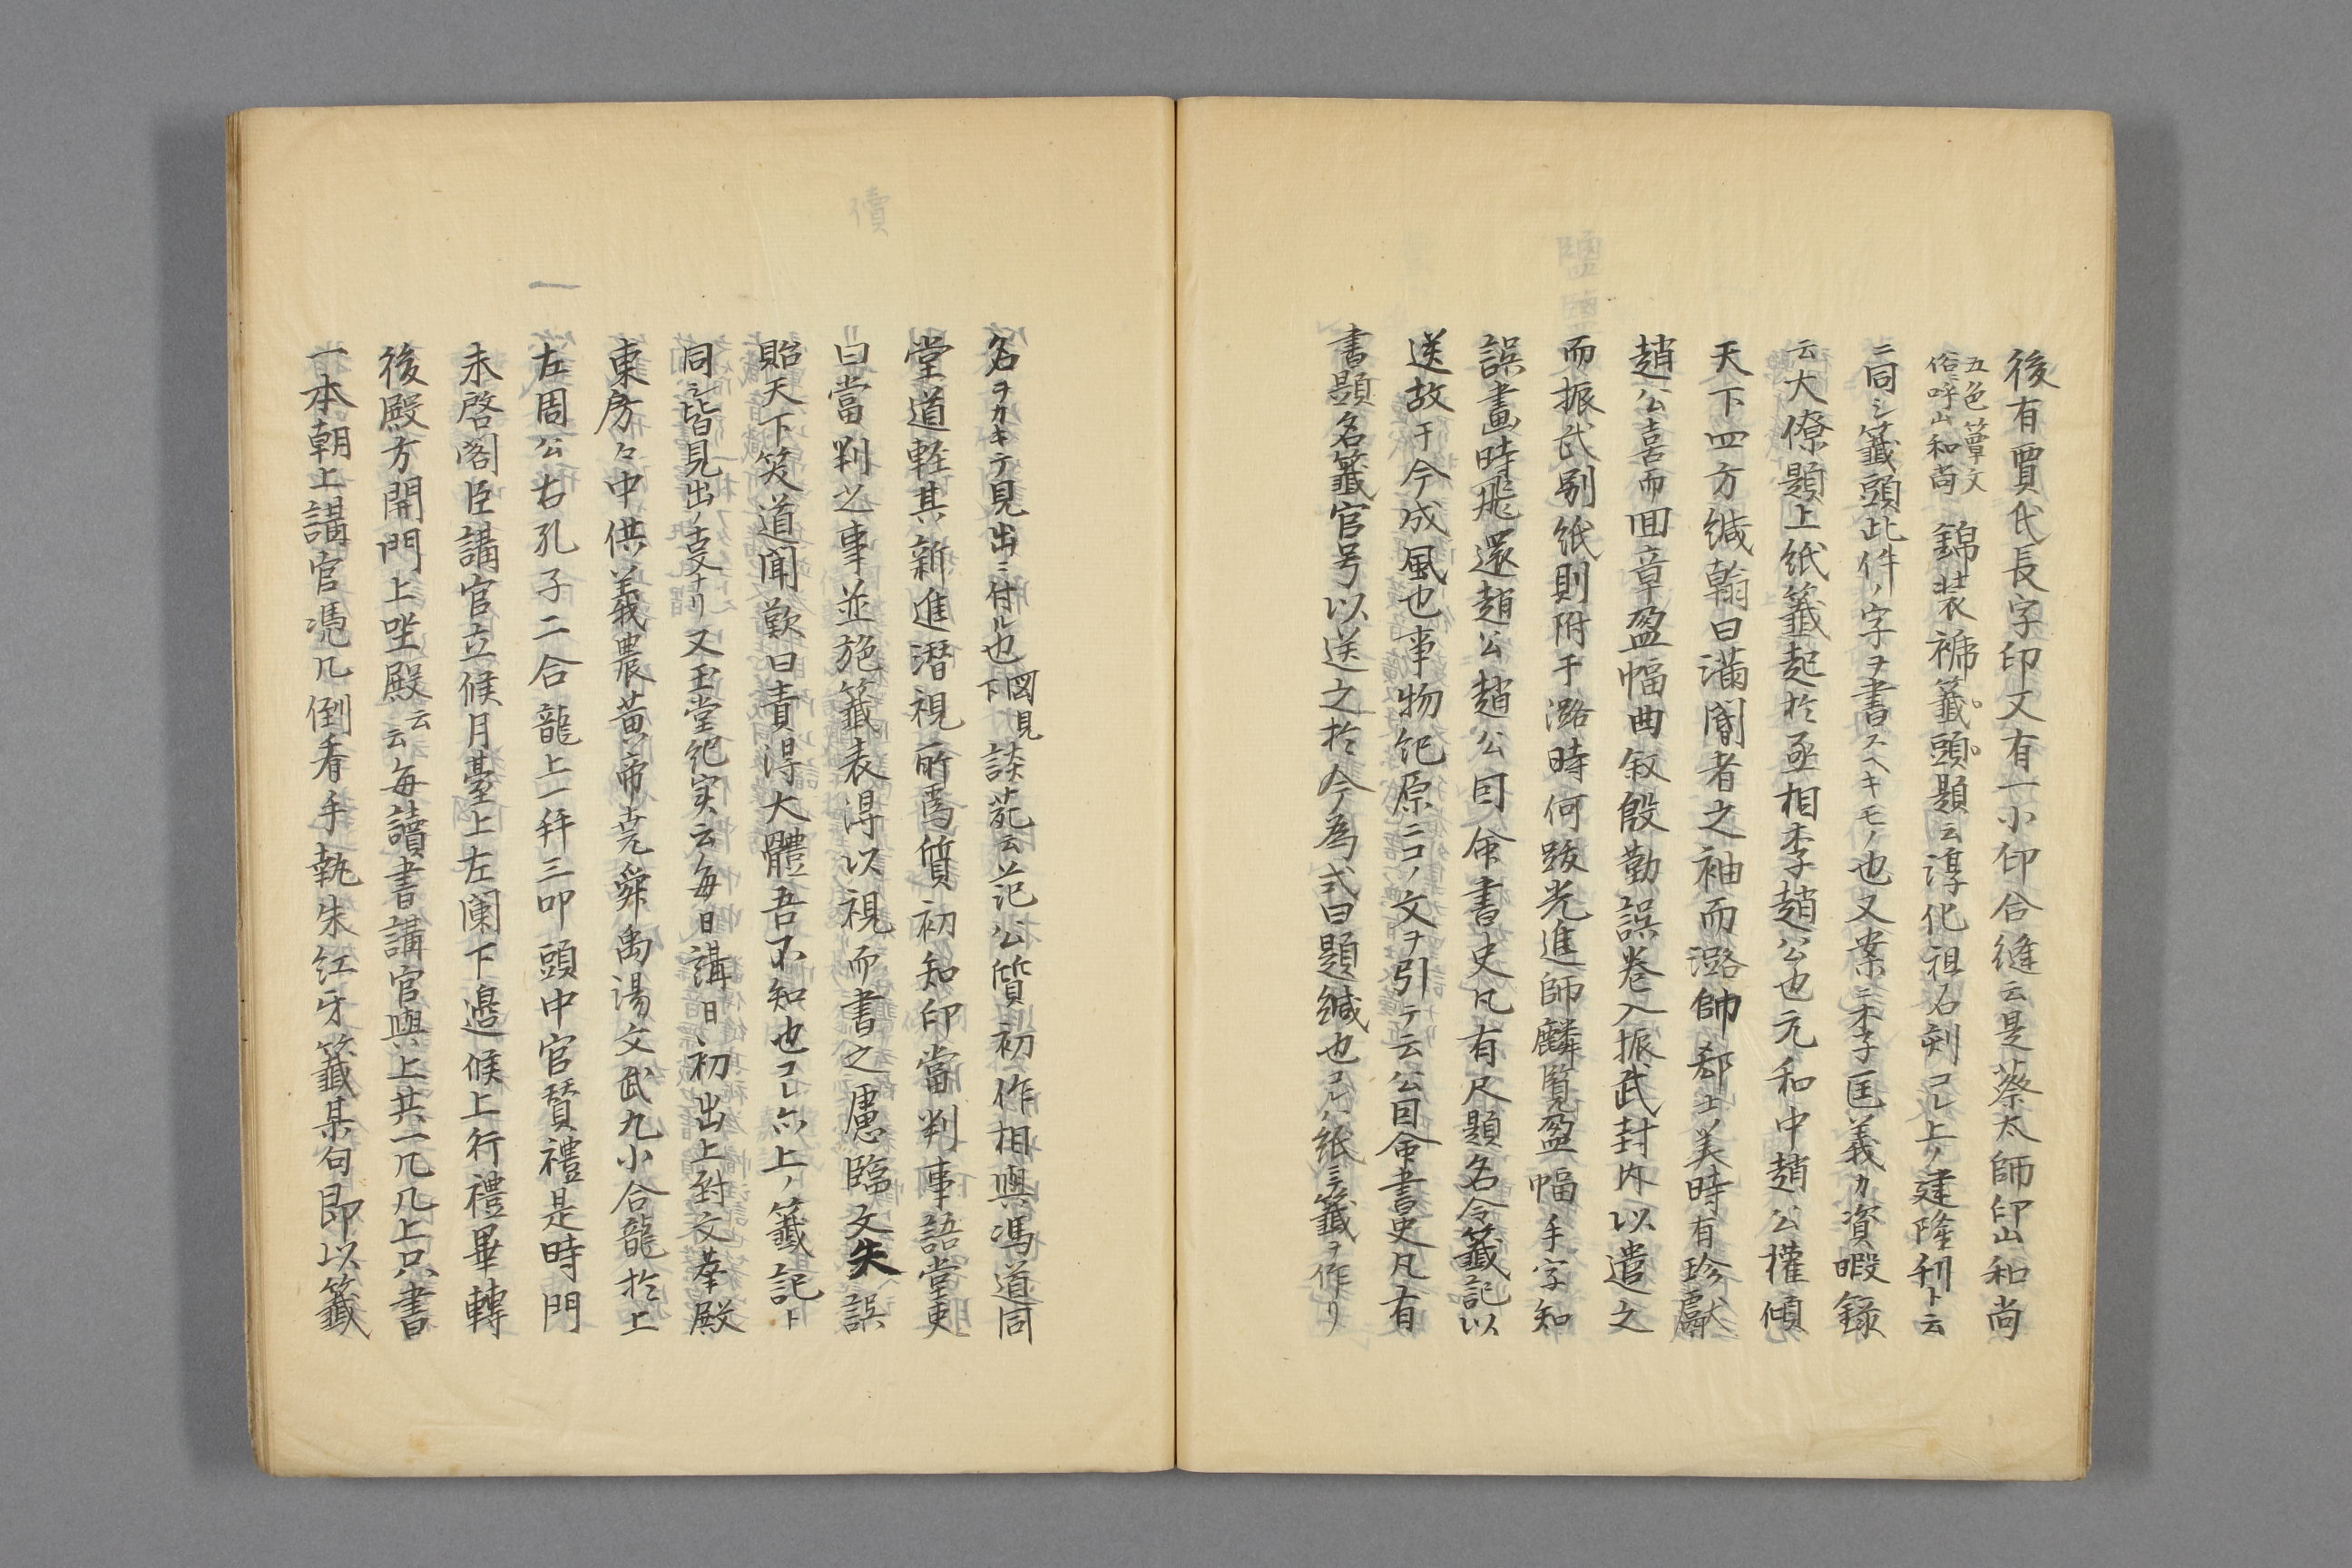 後有賈氏長字印又有一小印合縫云是蔡太師印山和尚
五色簟文
俗呼山和尚
錦装褫籤頭題云淳化祖石刻コレ上ノ建隆刊ト云
ニ同シ籤頭此件ノ字ヲ書スヘキモノ也又案ニ李匡義カ資暇録
云大僚題上紙籤起於丞相李趙公也元和中趙公權傾
天下四方緘翰日満閽者之袖而潞帥郄士美時有珍獻
趙公喜而囬章盈幅曲叙殷勤誤卷入振武封内以遣之
而振武別紙則附于潞時何跋光進師麟覧盈幅手字知
誤畫時飛還趙公趙公因命書吏凡有尺題名令籤記以
送故于今成風也事物紀原ニコノ文ヲ引テ云公因命書吏凡有
書題名籤官号以送之於今為式曰題緘也コレハ紙ミ籤ヲ作リ
名ヲカキテ見出ニ付ル也
図見
下
談苑云范公質初作相與馮道同
堂道輊其新進潜視所爲質初知印當判事語堂吏
曰當判之事並施籤表得以視而書之慮臨文失誤
貽天下笑道聞歎曰責得大體吾不知也コレ亦上ノ籤記ト
同シ皆見出ノ支ナリ又玉堂紀実云毎日講日初出上對文華殿
東房々中供義農黄帝尭舜禹湯文武九小合龍於上
左周公右孔子二合龍上一拜三叩頭中官賛禮是時門
未啓閣臣講官立候月臺上左闌下邉候上行禮畢轉
後殿方開門上坐殿云云毎讀書講官與上共一几几上只書
一本朝上講官馮几倒看手執朱紅牙籤某句即以籤
價
一